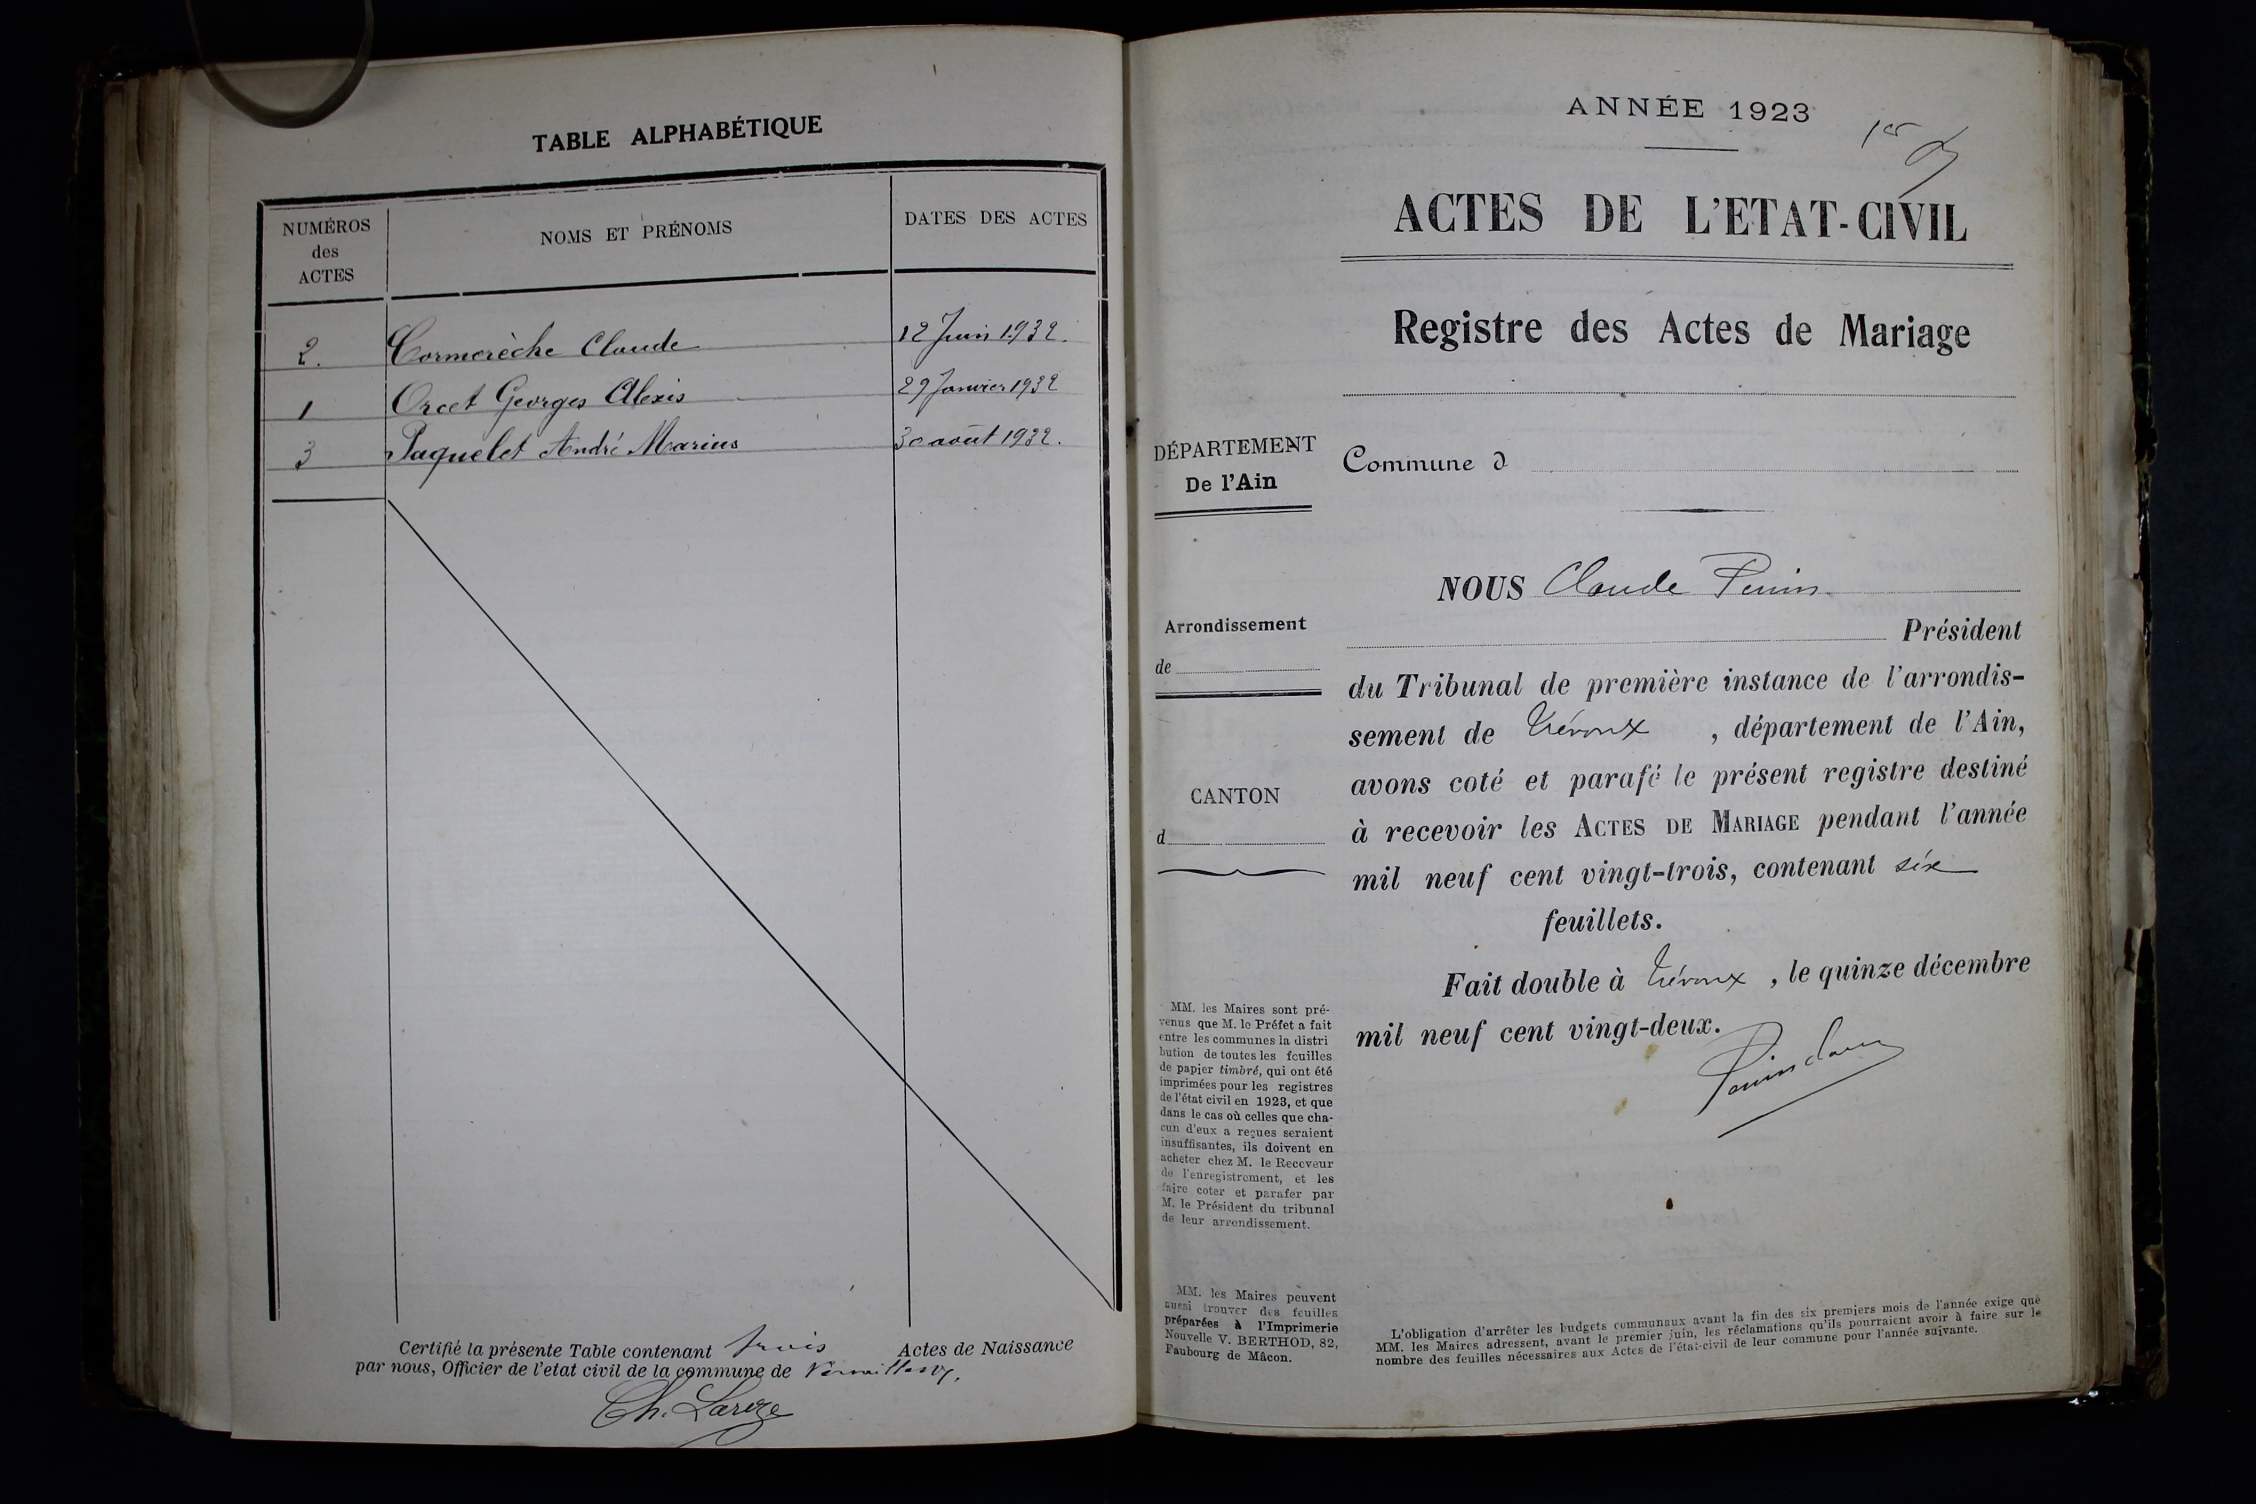 TABLE ALPHABÉTIQUE
NUMÉROS
des
ACTES
NOMS ET PRÉNOMS
DATES DES ACTES
2. Cormorèche Claude 12 Juin 1932.
1 Orcet Georges Alexis 29 Janvier 1932
3 Paquelet André Marius 30 août 1932.
Certifié la présente Table contenant trois Actes de Naissance
par nous, Officier de l'etat civil de la commune de
Ch.
ANNÉE 1923
1er
ACTES DE L'ETAT-CIVIL
Registre des Actes de Mariage
DÉPARTEMENT
De l'Ain
Commune d
NOUS Claude
Arrondissement
de
Président
du Tribunal de première instance de l'arrondis-
sement de Trévoux , département de l'Ain,
avons coté et parafé le présent registre destiné
CANTON
d
à recevoir les ACTES DE MARIAGE pendant l'année
mil neuf cent vingt-trois, contenant six
feuillets.
Fait double à Trévoux , le quinze décembre
mil neuf cent vingt-deux.
MM. les Maires sont pré-
venus que M. le Préfet a fait
entre les communes la distri
bution de toutes les feuilles
de papier timbré, qui ont été
imprimées pour les registres
de l'état civil en 1923, et que
dans le cas où celles que cha-
cun d'eux a reçues seraient
insuffisantes, ils doivent en
acheter chez M. le Receveur
de l'enregistrement, et les
faire coter et parafer par
M. le Président du tribunal
de leur arrondissement.
MM. les Maires peuvent
aussi trouver des feuilles
préparées à l'Imprimerie
Nouvelle V. BERTHOD, 82,
Faubourg de Mâcon.
L'obligation d'arrêter les budgets communaux avant la fin des six premiers mois de l'année exige que
MM. les Maires adressent, avant le premier juin, les réclamations qu'ils pourraient avoir à faire sur le
nombre des feuilles nécessaires aux Actes de l'état-civil de leur commune pour l'année suivante.